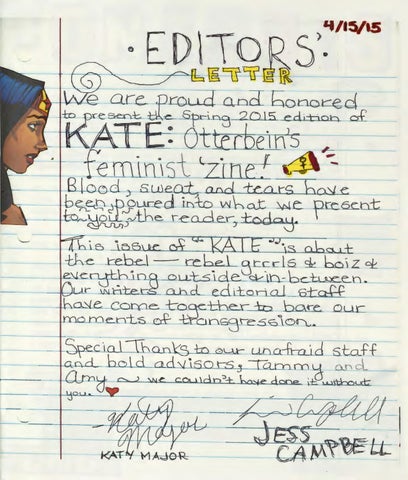 4/15/15
·EDITORS'·
LETTER
We are proud and honored
to present the Spring 2015 edition of
KATE: Otterbein's
feminist 'zine!
Blood, sweat, and tears have
been poured into what we present
to you, the reader, today.
This issue of "KATE" is about
the rebel — rebel grrrls & boiz &
everything outside & in-between.
Our writers and editorial staff
have come together to bare our
moments of transgression.
Special Thanks to our unafraid staff
and bold advisors, Tammy and
Amy ~ we couldn't have done it without
you. ♥
Katy
Major
KATY MAJOR
JESS
CAMPBELL